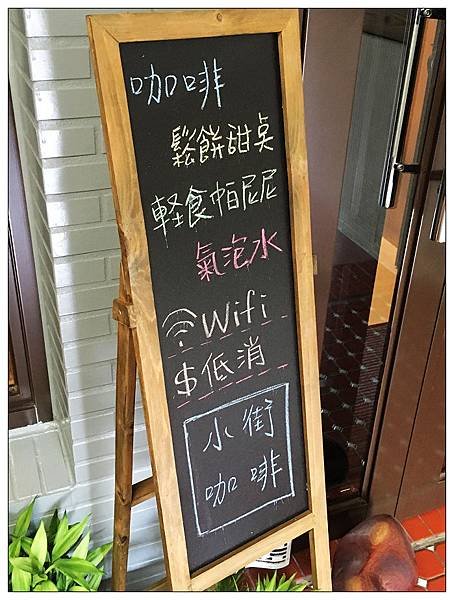 咖啡
鬆餅甜桌
軽食帕尼尼
氣泡水
Wifi
$低消
小街
咖啡